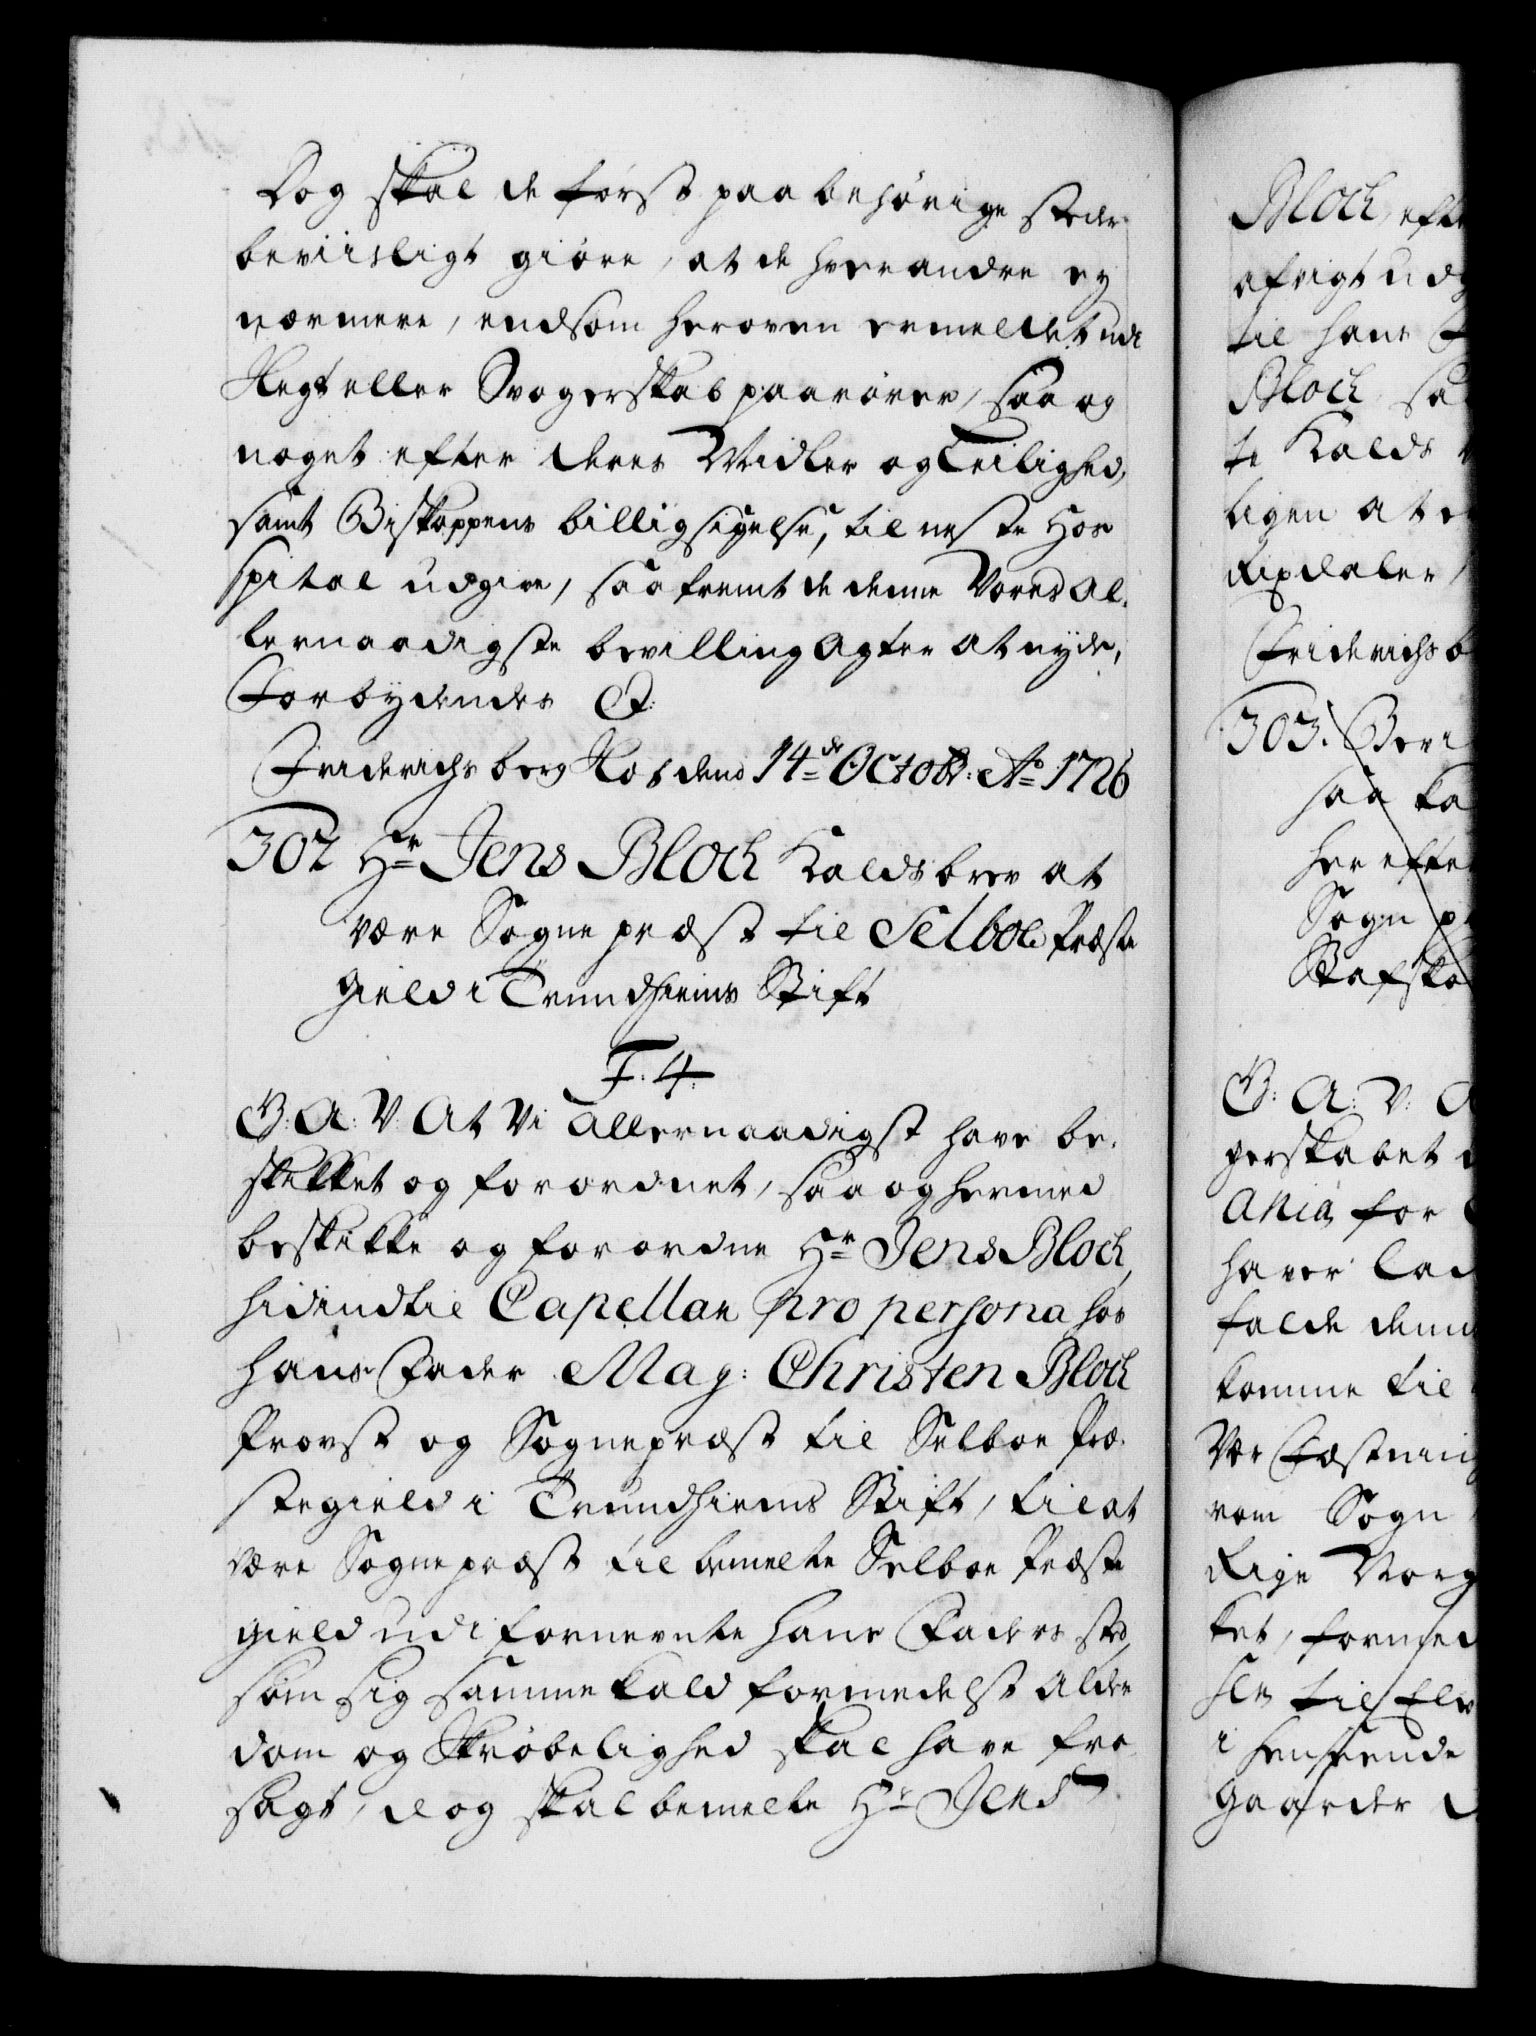 Dog skal de først paa behørige steder
beviisligt giøre, at de hverandre ey
nærmere, end som heroven ermeldet udi
Slegt eller Svogerskab paarører, saa og
noget efter deres Midler og Leilighed,
samt Biskoppens billigsigelse, til neste Ho-
spital udgive, saafremt de denne Vores Al-
lernaadigste bevilling agter at nyde,
Forbydendes &:
Friderichsberg Slot dend 14de Octobr: Ao 1726
302 Hr Jens Bloch Kaldsbrev at
være Sognepræst til Selboe Præste
gield i Trundhiems Stift
F. 4.
G: A: V: At Vi allernaadigst have be-
skikket og forordnet, saa og hermed
beskikke og forordne Hr Jens Bloch,
hidindtil Capellan pro persona hos
hans Fader Mag: Christen Bloch
Provst og Sognepræst til Selboe Præ-
stegield i Trundhiems Stift, til at
være Sognepræst til bemelte Selboe Præste
gield udi fornevnte hans Faders sted
som sig samme kald formedelst alder
dom og skrøbelighed skal have fra
sagt, dog skal bemelte Hr Jens
Bloch, efte
afvigt udg
til hans F
Bloch saa
te Kalds
ligen at
Rixdaler
Friderichsb
303. Bevi
saa ka
her efte
Sogn p
G: A: V: A
gerskabet
ania for
haver lad
falde denn
komme til
Vor Fæstning
vom Sogn
Rige Norg
ket, formed
til Elv
i henseende
Gaarder